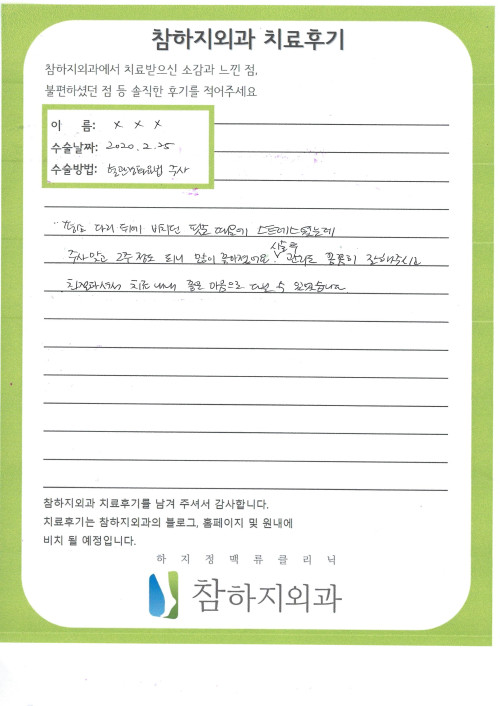 참하지외과 치료후기
참하지외과에서 치료받으신 소감과 느낀 점,
불편하셨던 점 등 솔직한 후기를 적어주세요
이 름: x x x
수술날짜: 2020. 2. 25
수술방법: 혈관경화요법 주사
평소 다리 뒤에 비치던 핏줄 때문에 스트레스였는데
시술 후
주사맞고 2주정도 되니 많이 좋아졌어요. 관리도 꼼꼼히 잘해주시고
친절하셔서 치료 내내 좋은 마음으로 다닐 수 있었습니다
참하지외과 치료후기를 남겨 주셔서 감사합니다.
치료후기는 참하지외과의 블로그, 홈페이지 및 원내에
비치 될 예정입니다.
하지정맥류클리닉
참하지외과